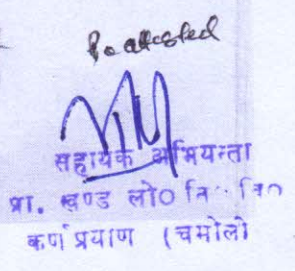 attested
सहायक अभियन्ता
प्रा. खण्ड लो० नि० वि०
कर्णप्रयाण (चमोली)